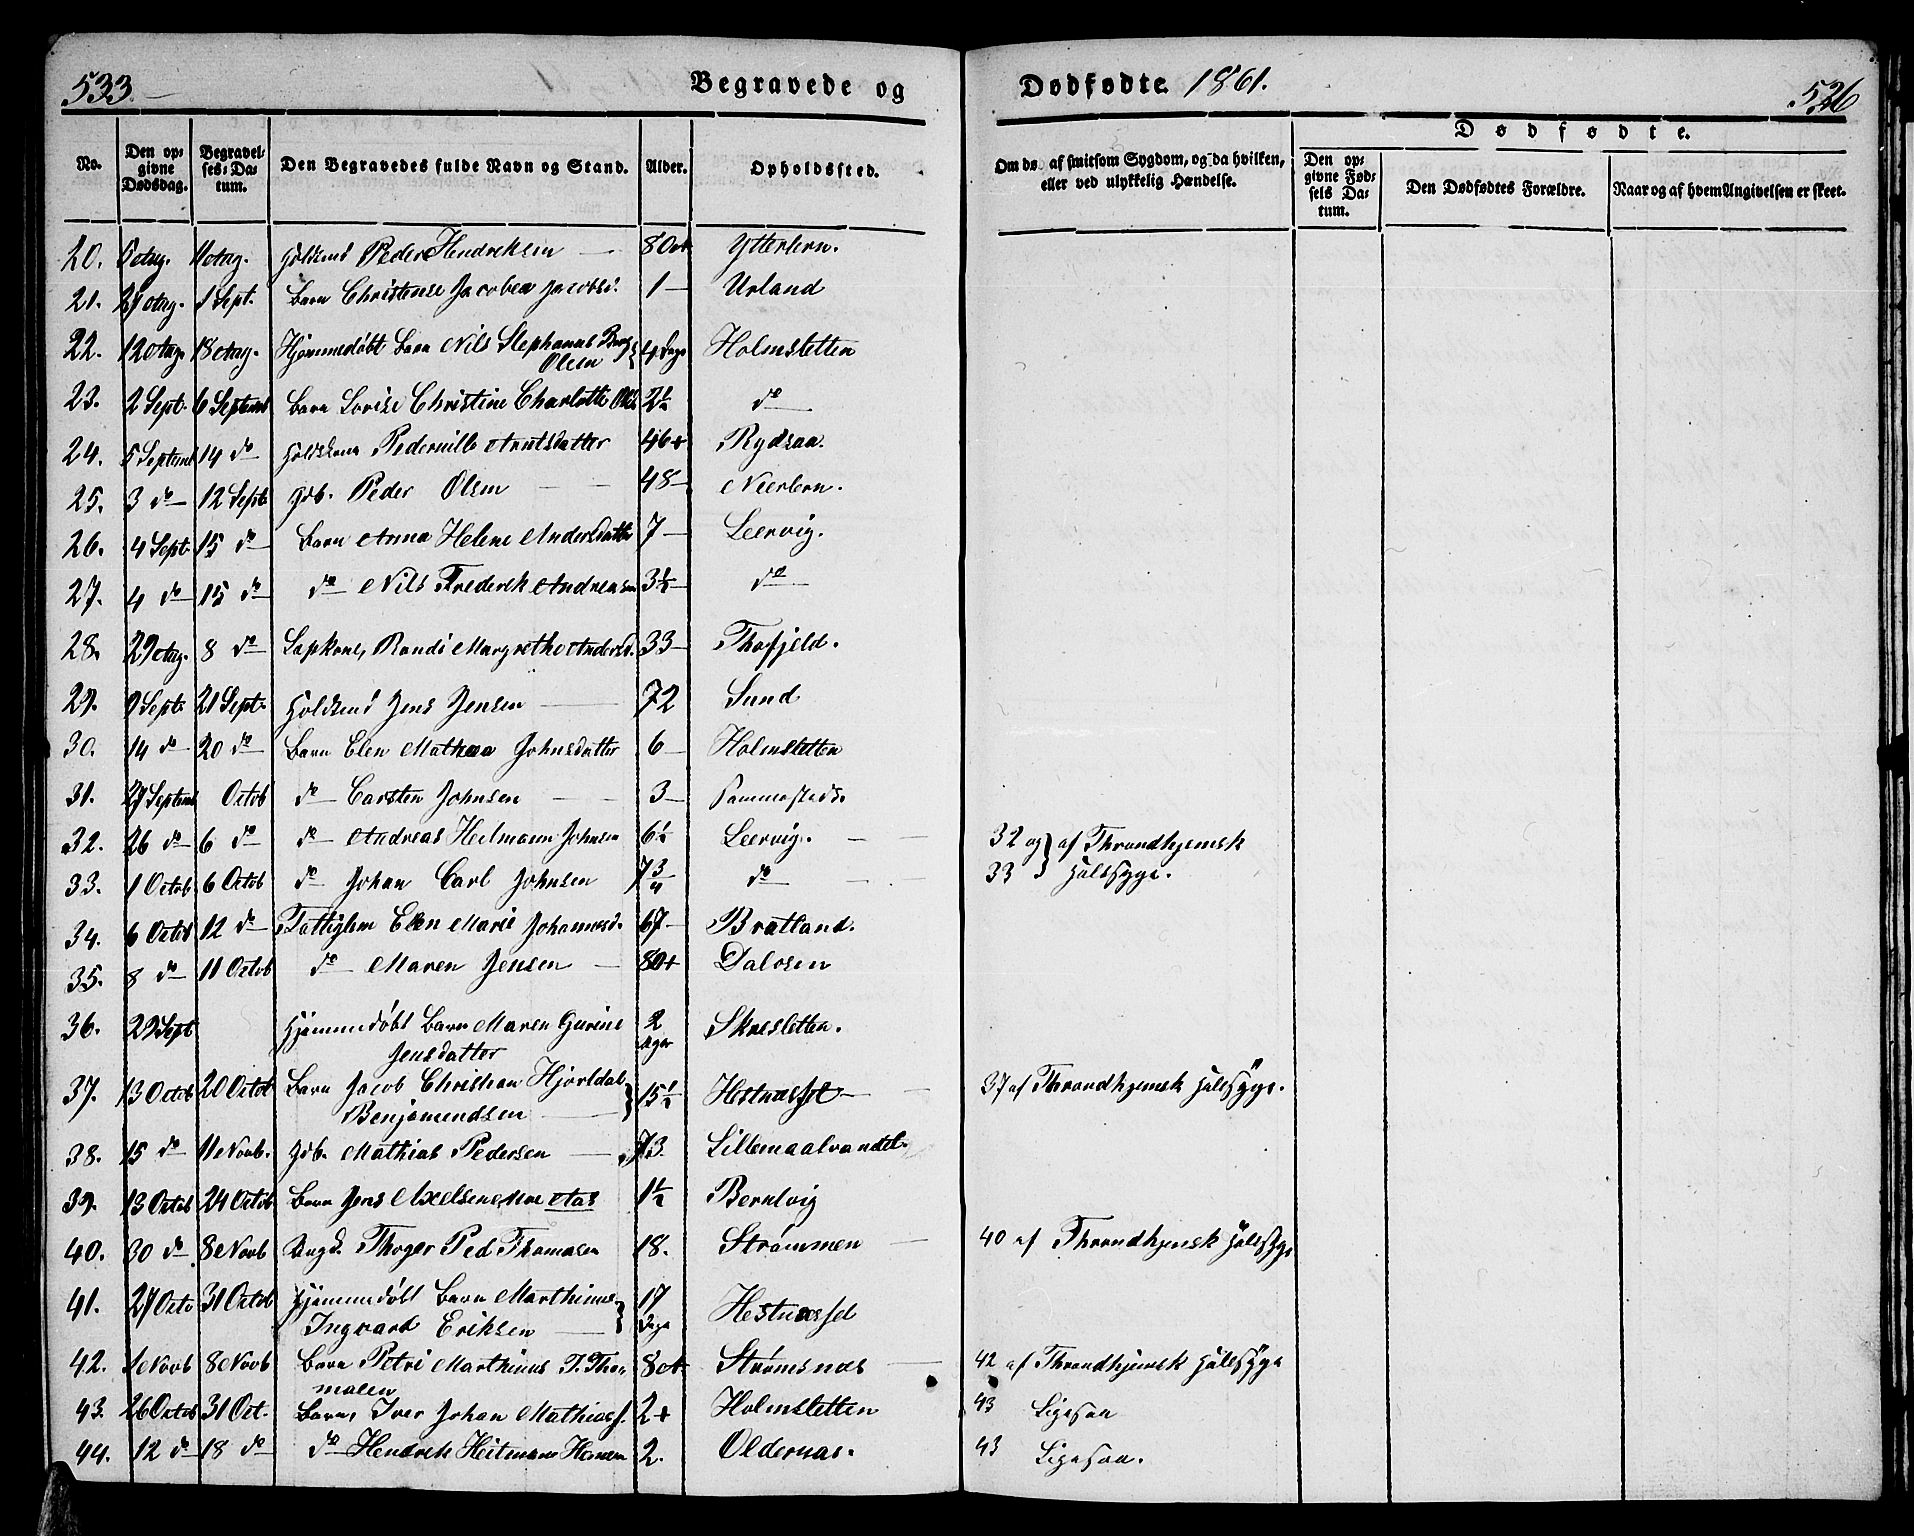 533.
Begravede og
Dødfødte 1861.
526
No.
Den opgivne Dødsdag.
Begravelses-Datum.
Den Begravedes fulde Navn og Stand.
Alder.
Opholdssted.
Om dø af smitsom Sygdom, og da hvilken, eller ved ulykkelig Hændelse.
Dødfødte.
Den opgivne Fødsels Datum.
Den Dødfødtes Forældre.
Naar og af hvem Angivelsen er skeet.
20. Peder Hendriksen — 80 Ytterlern.
21. 1 Sept. Barn Christense Jacobea Jacobsd. 1 — Urland
22. Hjemmedøbt Barn Nils Stephanus Olsen 4 Dage Holmsletten
23. 2 Sept. 6 Septemb Barn Lovise Christine Charlotte 2½ do
24. 5 Septemb 14 do Pedernille Arntsdatter 46 Rydsaa.
25. 3 do 12 Sept Gdb. Peder Olsen — 48 — Neerlern.
26. 4 Sept. 15 do Barn Anna Helene Andersdatter 7 — Leervig.
27. 4 do 15 do do Nils Frederik Andreassen 3½ do
28. 8 do Lapkone, Randi Margrethe Andersd. 33 — Thofjeld.
29. 9 Sept. 21 Sept. Jens Jensen — 72 Sund
30. 14 do 20 do Barn Elen Mathea Johnsdatter 6 — Holmsletten
31. 29 Septemb Octob do Carsten Johnsen — 3 —
32. 26 do 6 do do Andreas Heilmann Johnsen 6½ Leervig. — 32 og } af Throndhjemsk
33. 1 Octob 6 Octob do Johan Carl Johnsen 7¾ do — 33 } Halssyge.
34. 6 Octob 12 do Fattiglem Elen Marie Johannesd. 67 — Bratland.
35. 8 do 11 Octob do Maren Jensen — 80 Dalosen
36. 29 Sept Hjemmedøbt Barn Maren Gurine Jensdatter 2 Skresletten.
37. 13 Octob 20 Octob Barn Jacob Christian Hjortdal Benjamindsen 15½ Hestnæsset — 37 af Throndhjemsk Halssyge.
38. 15 do 11e Novb. Gdb. Mathias Pedersen — 73 Lillemaalvandet.
39. 13 Octob 24 Octob Barn Jens Axelsen Moe Aas 1½ Berntvig
40. 30 do 8e Novb Ungk. Thoger Ped Thomasen 18. Strømmen — 40 af Throndhjemsk Halssyge
41. 27 Octo 31 Octob Hjemmedøbt Barn Marthinus Ingvart Eriksen — 17 Dage Hestnæsset
42. 1e Novb 8e Novb Barn Petri Marthinus T. Thomasen 8 Strømsnæs — 42 af Throndhjemsk Halssyge
43. 26 Octob 31 Oct. Barn, Iver Johan Mathiass. 2 Holmsletten 43 Ligesaa
44. 12 do 18 do do Hendrik Heitmann Hansen 2. Oldernæs. 43 Ligesaa.